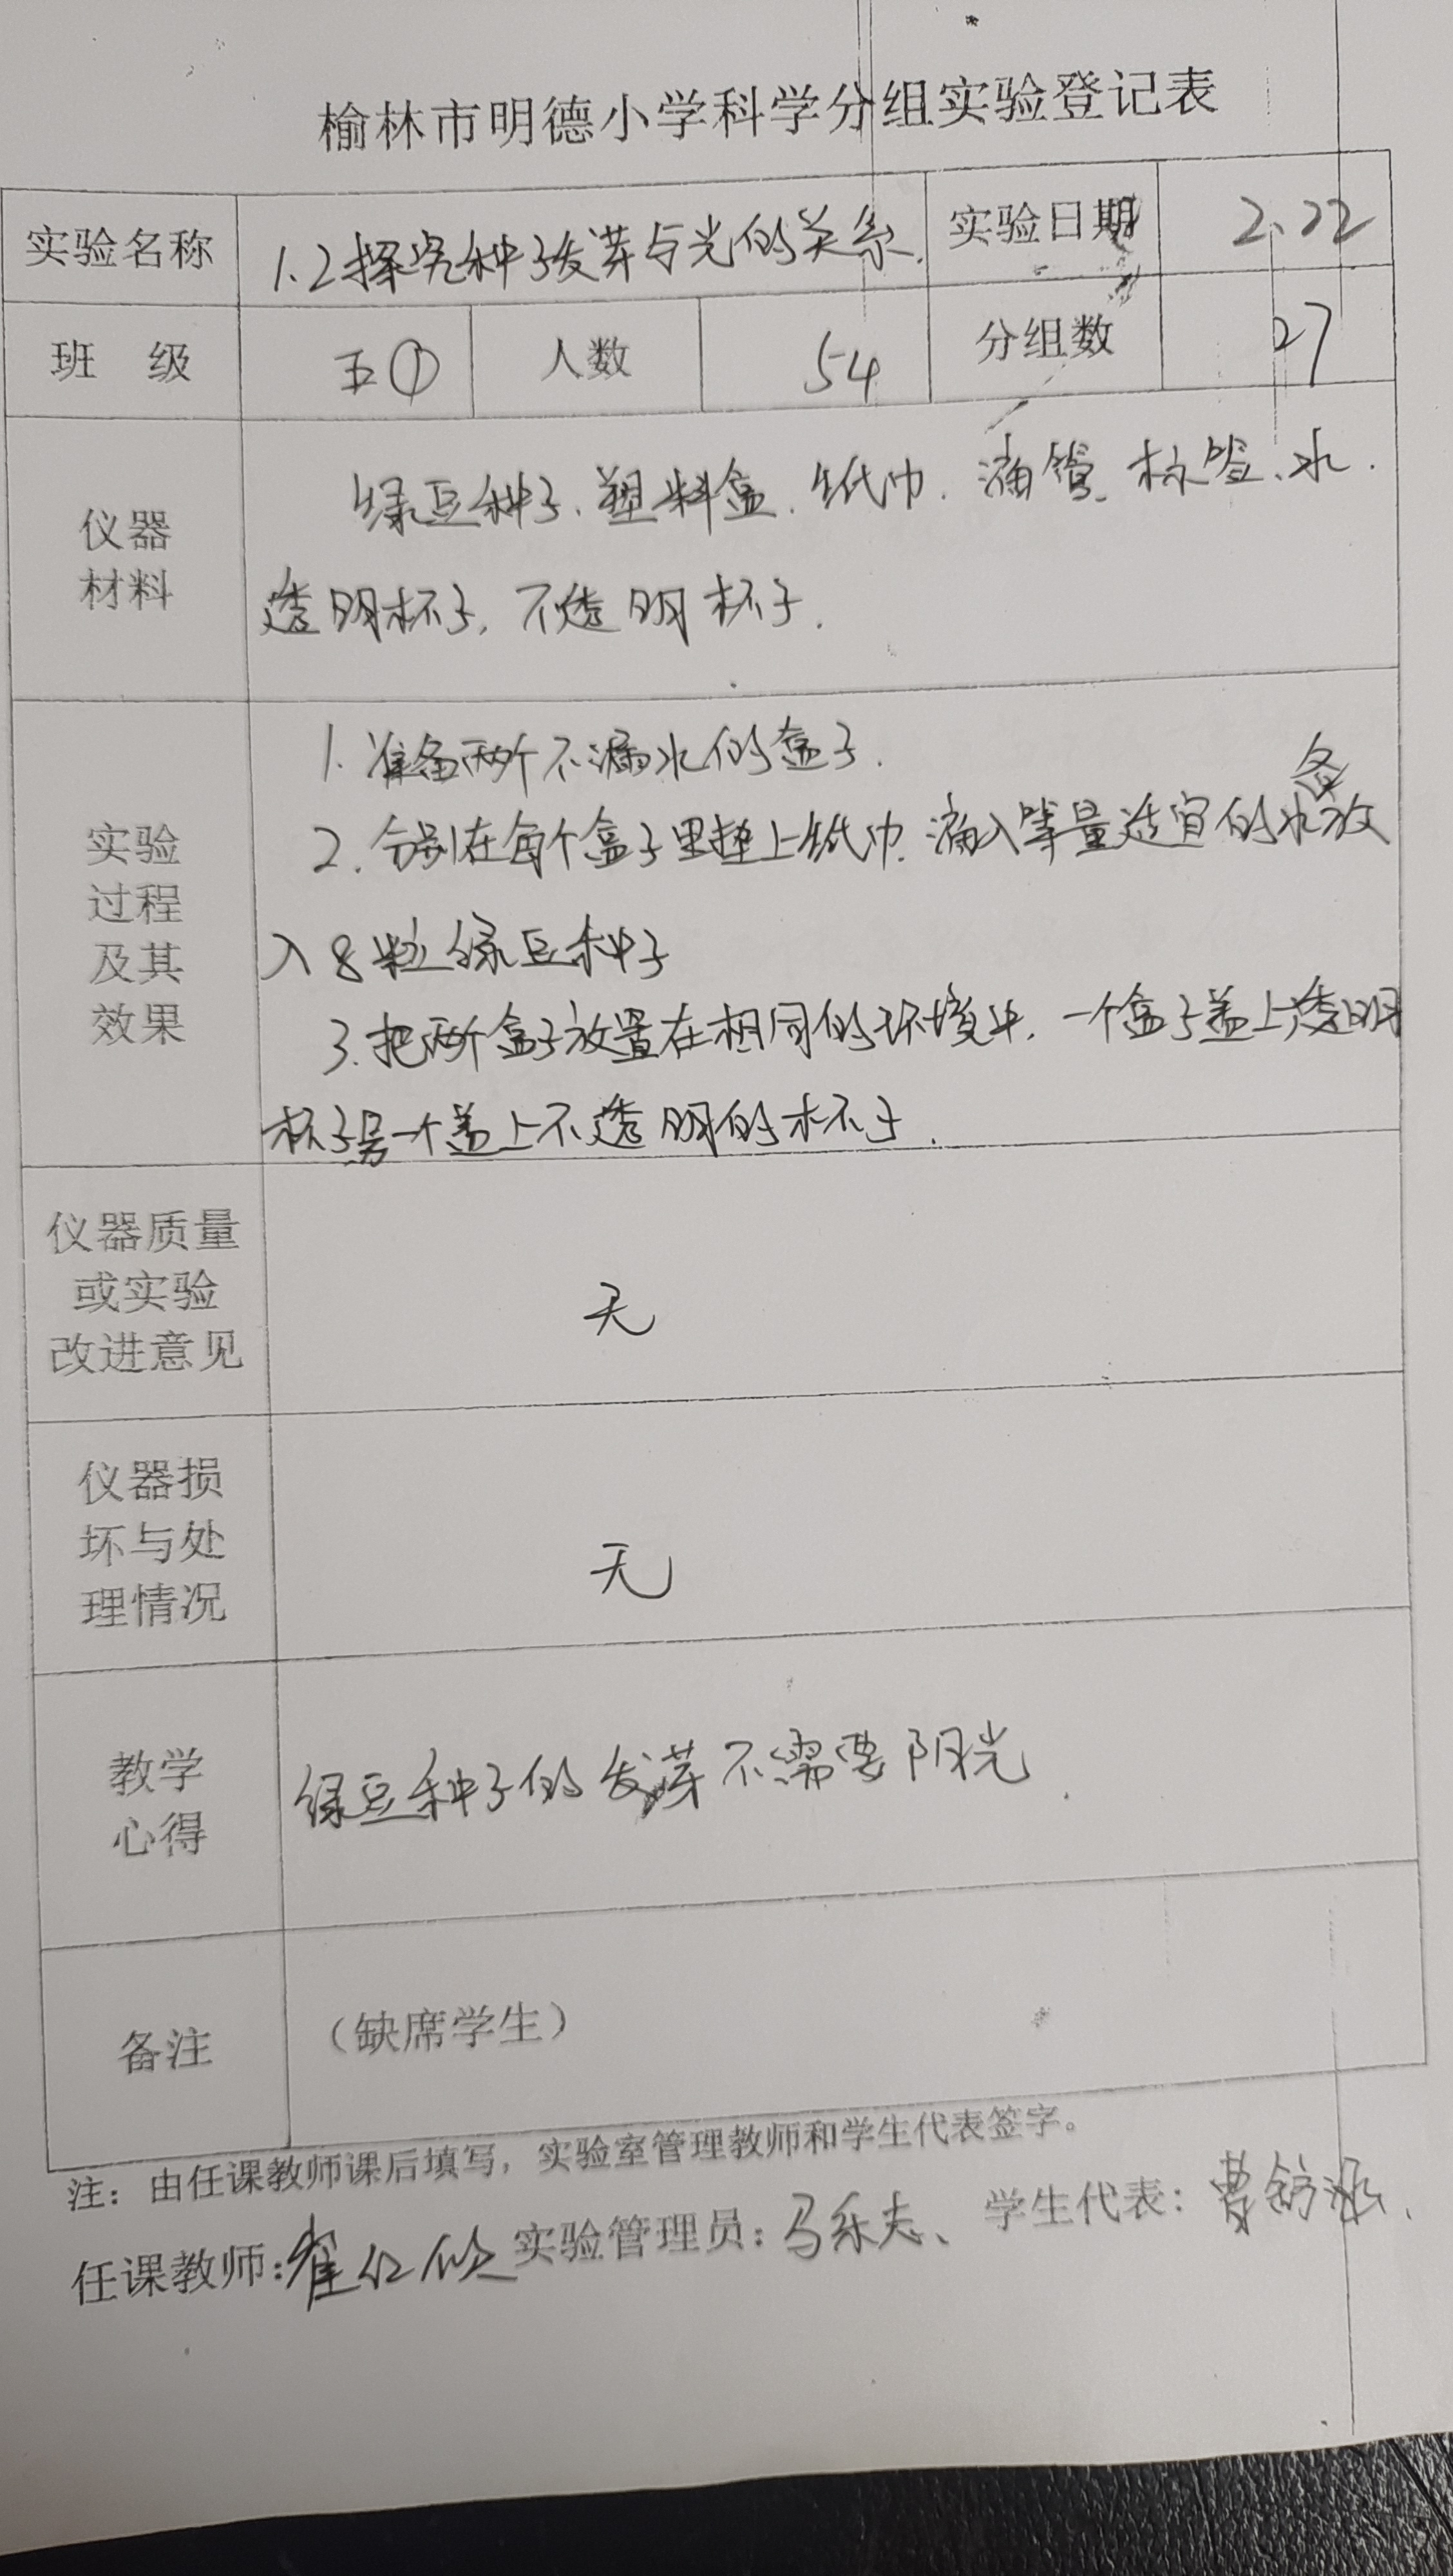 榆林市明德小学科学分组实验登记表
实验名称 1.2探究种子发芽与光的关系. 实验日期 2.22
班 级 五① 人数 54 分组数 27
仪器
材料
绿豆种子、塑料盒、纸巾、滴管、标签、水.
透明杯子,不透明杯子.
实验
过程
及其
效果
1.准备两个不漏水的盒子.
各
2.分别在每个盒子里垫上纸巾.滴入等量适宜的水放
入8粒绿豆种子
3.把两个盒子放置在相同的环境中.一个盒子盖上透明
杯子另一个盖上不透明的杯子.
仪器质量
或实验
改进意见
无
仪器损
坏与处
理情况
无
教学
心得
绿豆种子的发芽不需要阳光.
备注 (缺席学生)
注:由任课教师课后填写,实验室管理教师和学生代表签字。
任课教师: 实验管理员:马乐志、 学生代表: